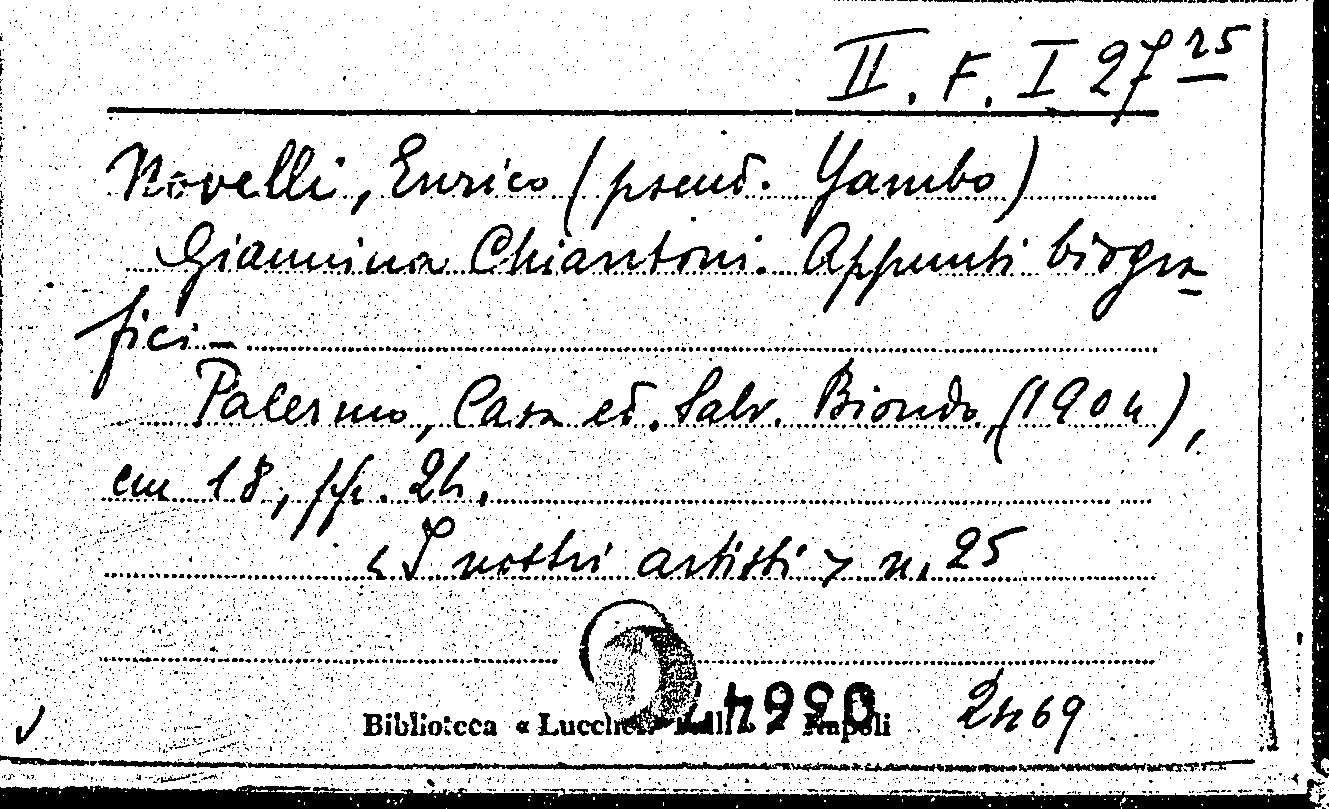 II. F. I 27 25
Novelli, Enrico (pseud. Yambo)
Giannina Chiantoni. Appunti biogra-
fici -
Palermo, Casa ed. Salv. Biondo, (1904),
cm 18, pp. 24.
« I nostri artisti » n. 25
Biblioteca « Lucchesi Palli » Napoli
2469